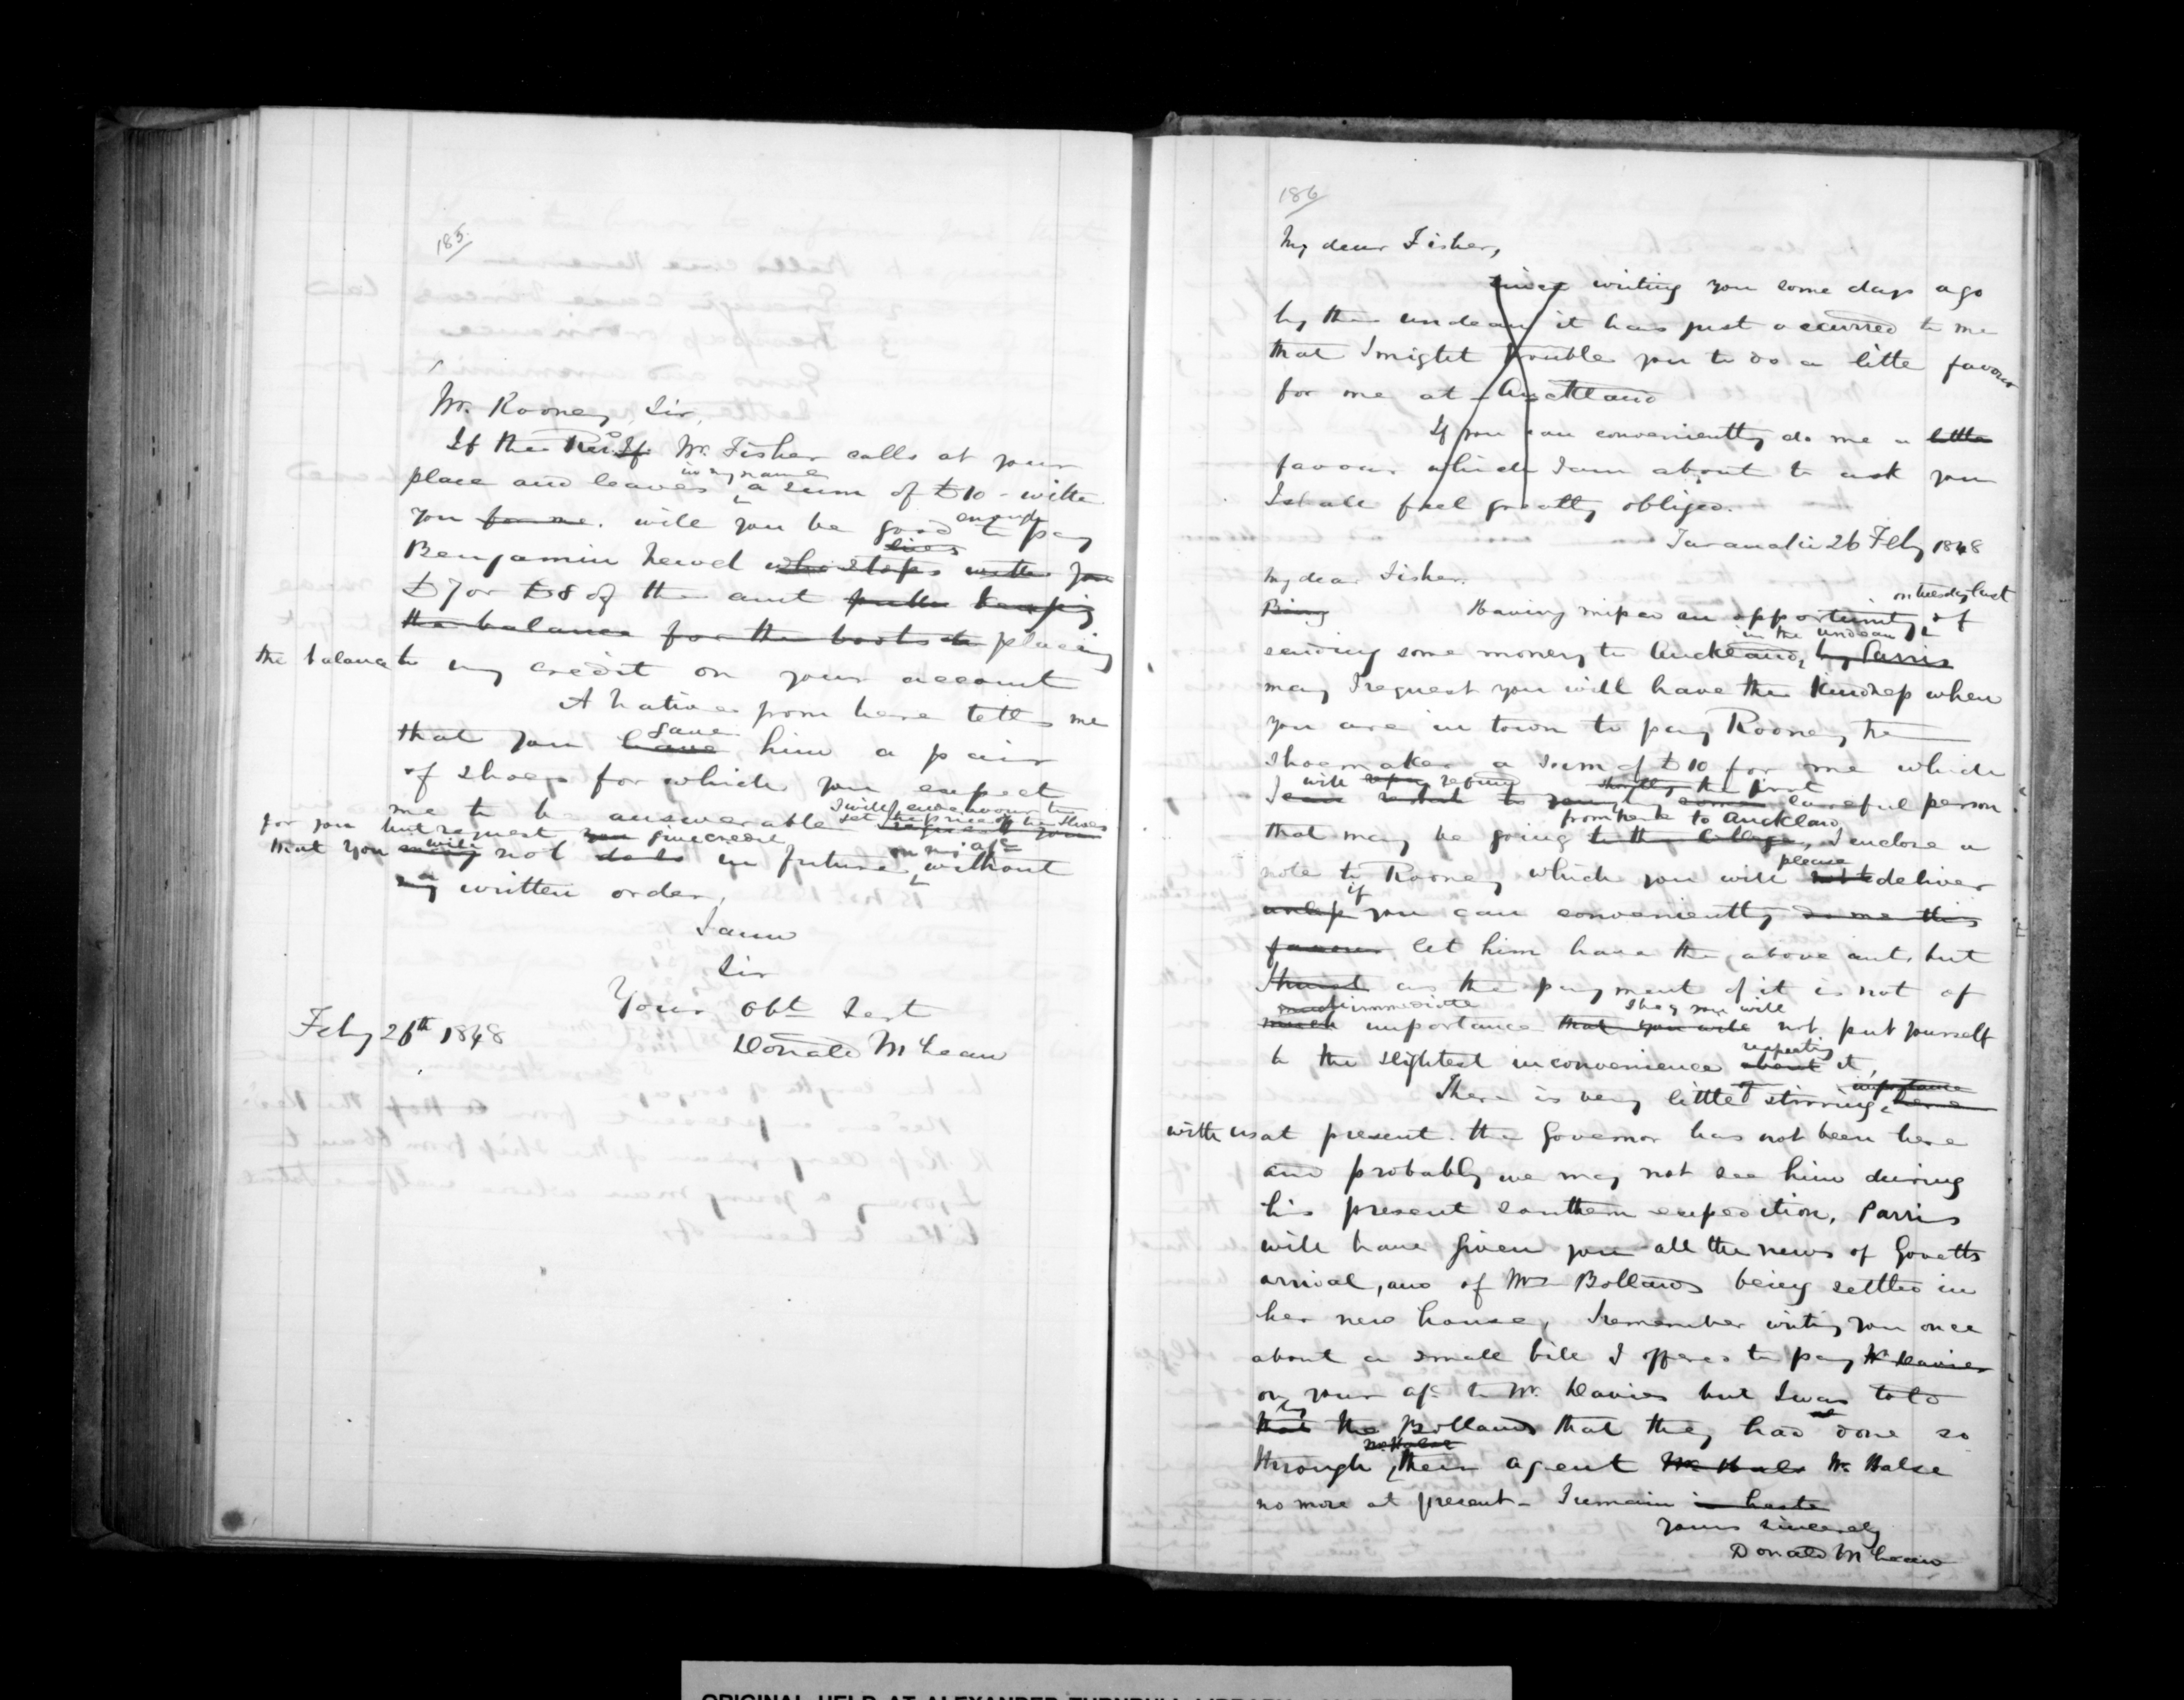 185.
Mr. Rooney, Sir,
If the Mr. Fisher calls at your
in my name
place and leaves a sum of £10 - with
you for me. will you be good enough to pay
lives
Benjamin Newel who stops with you
£7 or £8 of the amt keeping
the balance for the boots to placing
the balance to my credit on your account
A native from here tells me
gave
that you have him a pair
of shoes for which you expect
I will endeavour to
me to be answerable get the price of the shoes
for you but request you give credit
that you will not in future on my a/c without
my written order,
I am
Sir
Your obt Sert
Feby 26th 1848
Donald McLean
186
My dear Fisher,
Since writing you some days ago
by the Undean it has just occurred to me
that I might trouble you to do a litte favour
for me at Auckland
If you can conveniently do me a little
favour which I am about to ask you
I shall feel greatly obliged.
Taranaki 26 Feby 1848
My dear Fisher.
on tuesday last
Being Having missed an opportunity of
in the Undean
sending some money to Auckland, by Parris
may I request you will have the kindness when
you are in town to pay Rooney the
shoemaker a sum of £10 for me which
will repay refund shortly the first
I can by some careful person
from here to Auckland
that may be going to the College, I enclose a
please
note to Rooney which you will not deliver
if
unless you can conveniently do me this
favour let him have the above amt. but
I trust as the payment of it is not of
immediate I hope you will
much importance that you will not put yourself
respecting
to the slightest inconvenience about it,
There is very little of stirring importance here
with us at present. the Governor has not been here
and probably we may not see him during
his present southern expedition, Parris
will have given you all the news of Govetts
arrival, and of Mrs Bollands being settled in
her new house, I remember writing you once
about a small bill I offered to pay Mr Davies
on your a/c to Mr. Davies but I was told
by
that the Bollands that they had done so
Mr. Halse
through their agent Mr Halse Mr. Halse
no more at present - I remain in haste
yours sincerely
Donald McLean